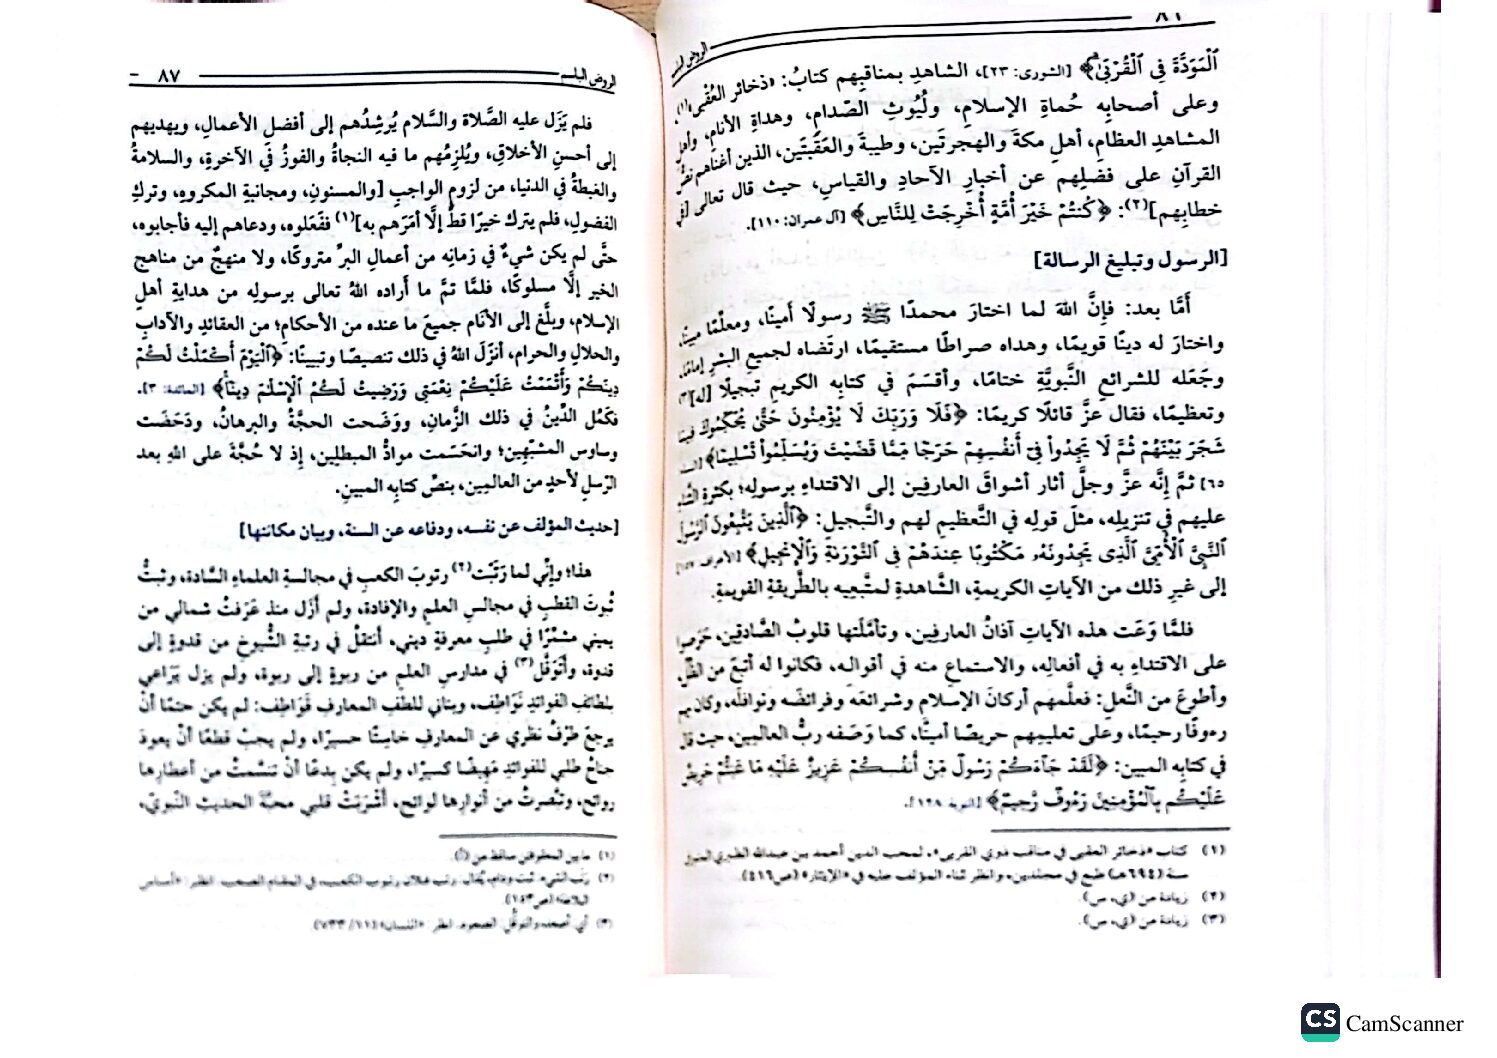 ٨٦
الروض الباسم
ٱلْمَوَدَّةَ فِي ٱلْقُرْبَىٰ﴾ [الشورى: ٢٣]، الشاهدِ بمناقبِهم كتابُ: «ذخائر العُقْبى»(١)،
وعلى أصحابِه حُماةِ الإسلامِ، ولُيُوثِ الصِّدامِ، وهداةِ الأنامِ، وأهلِ
المشاهدِ العظامِ، أهلِ مكةَ والهجرتَين، وطيبةَ والعَقَبتَين، الذين أغناهم نصُّ
القرآنِ على فضلِهم عن أخبارِ الآحادِ والقياسِ، حيث قال تعالى [في
خطابِهم](٢): ﴿كُنتُمْ خَيْرَ أُمَّةٍ أُخْرِجَتْ لِلنَّاسِ﴾ [آل عمران: ١١٠].
[الرسول وتبليغ الرسالة]
أمَّا بعد: فإنَّ اللهَ لما اختارَ محمدًا ﷺ رسولًا أمينًا، ومعلِّمًا مبينًا،
واختارَ له دينًا قويمًا، وهداه صراطًا مستقيمًا، ارتضاه لجميعِ البشرِ إمامًا،
وجَعَله للشرائعِ النَّبويَّةِ ختامًا، وأقسَمَ في كتابِه الكريمِ تبجيلًا [له](٣)
وتعظيمًا، فقال عزَّ قائلًا كريمًا: ﴿فَلَا وَرَبِّكَ لَا يُؤْمِنُونَ حَتَّىٰ يُحَكِّمُوكَ فِيمَا
شَجَرَ بَيْنَهُمْ ثُمَّ لَا يَجِدُواْ فِيٓ أَنفُسِهِمْ حَرَجًا مِّمَّا قَضَيْتَ وَيُسَلِّمُواْ تَسْلِيمًا﴾
٦٥] ثمَّ إنَّه عزَّ وجلَّ أثار أشواقَ العارفِين إلى الاقتداءِ برسولِه؛ بكثرةِ الثناءِ
عليهم في تنزيلِه، مثلَ قولِه في التَّعظيمِ لهم والتَّبجيل: ﴿ٱلَّذِينَ يَتَّبِعُونَ ٱلرَّسُولَ
ٱلنَّبِيَّ ٱلْأُمِّيَّ ٱلَّذِي يَجِدُونَهُۥ مَكْتُوبًا عِندَهُمْ فِي ٱلتَّوْرَىٰةِ وَٱلْإِنجِيلِ﴾ [الأعراف: ١٥٧]
إلى غيرِ ذلك من الآياتِ الكريمةِ، الشَّاهدةِ لمتَّبعِيه بالطَّريقةِ القويمةِ.
فلمَّا وَعَت هذه الآياتِ آذانُ العارفِين، وتأمَّلَتها قلوبُ الصَّادقِين، حَرَصوا
على الاقتداءِ به في أفعالِه، والاستماعِ منه في أقوالِه، فكانوا له أتبعَ من الظِّلِّ،
وأطوعَ من النَّعلِ: فعلَّمهم أركانَ الإسلامِ وشرائعَه وفرائضَه ونوافلَه، وكان بهم
رءوفًا رحيمًا، وعلى تعليمِهم حريصًا أمينًا، كما وَصَفه ربُّ العالمِين، حيث قال
في كتابِه المبين: ﴿لَقَدْ جَآءَكُمْ رَسُولٌ مِّنْ أَنفُسِكُمْ عَزِيزٌ عَلَيْهِ مَا عَنِتُّمْ حَرِيصٌ
عَلَيْكُم بِٱلْمُؤْمِنِينَ رَءُوفٌ رَّحِيمٌ﴾ [التوبة: ١٢٨].
(١) كتاب «ذخائر العقبى في مناقب ذوي القربى»، لمحب الدين أحمد بن عبدالله الطبري المتوفى
سنة (٦٩٤هـ) طبع في مجلدين، وانظر ثناء المؤلف عليه في «الإيثار» (ص٤١٦).
(٢) زيادة من (ي، س).
(٣) زيادة من (ي، س).
الروض الباسم
٨٧
فلم يَزَل عليه الصَّلاة والسَّلام يُرشِدُهم إلى أفضلِ الأعمالِ، ويهديهم
إلى أحسنِ الأخلاقِ، ويُلزِمُهم ما فيه النجاةُ والفوزُ في الآخرةِ، والسلامةُ
والغبطةُ في الدنيا، من لزومِ الواجبِ [والمسنونِ، ومجانبةِ المكروهِ، وتركِ
الفضولِ، فلم يترك خيرًا قطُّ إلَّا أمَرَهم به](١) ففَعَلوه، ودعاهم إليه فأجابوه،
حتَّى لم يكن شيءٌ في زمانِه من أعمالِ البرِّ متروكًا، ولا منهجٌ من مناهجِ
الخيرِ إلَّا مسلوكًا، فلمَّا تمَّ ما أراده اللهُ تعالى برسولِه من هدايةِ أهلِ
الإسلامِ، وبلَّغ إلى الأنَامِ جميعَ ما عنده من الأحكامِ؛ من العقائدِ والآدابِ
والحلالِ والحرامِ، أنزَلَ اللهُ في ذلك تنصيصًا وتبيينًا: ﴿ٱلْيَوْمَ أَكْمَلْتُ لَكُمْ
دِينَكُمْ وَأَتْمَمْتُ عَلَيْكُمْ نِعْمَتِي وَرَضِيتُ لَكُمُ ٱلْإِسْلَٰمَ دِينًا﴾ [المائدة: ٣].
فكَمُل الدِّينُ في ذلك الزَّمانِ، ووَضَحت الحجَّةُ والبرهانُ، ودَحَضَت
وساوس المشبّهِين؛ وانحَسَمت موادُّ المبطلِين، إذ لا حُجَّةَ على اللهِ بعد
الرّسلِ لأحدٍ من العالمِين، بنصِّ كتابِه المبينِ.
[حديث المؤلف عن نفسه، ودفاعه عن السنة، وبيان مكانتها]
هذا؛ وإنِّي لما رَتَبْت(٢) رتوبَ الكعبِ في مجالسةِ العلماءِ السَّادة، وثبتُّ
ثُبوتَ القطبِ في مجالسِ العلمِ والإفادة، ولم أزَل منذ عَرَفتُ شمالي من
يميني مشمِّرًا في طلبِ معرفةِ ديني، أنتقلُ في رتبةِ الشُّيوخِ من قدوةٍ إلى
قدوة، وأتَوقَّل(٣) في مدارسِ العلمِ من ربوةٍ إلى ربوة، ولم يزل يَراعي
بلطائفِ الفوائدِ نَواطِف، وبناني للُطفِ المعارفِ قَواطِف: لم يكن حتمًا أنْ
يرجعَ طَرْفُ نظري عن المعارفِ خاسئًا حسيرًا، ولم يجبْ قطعًا أنْ يعودَ
جناحُ طلبي للفوائدِ مَهِيضًا كسيرًا، ولم يكن بِدعًا أنْ تنسَّمتُ من أعطارِها
روائح، وتبصَّرتُ من أنوارِها لوائح، أُشرِبَتْ قلبي محبَّةَ الحديثِ النَّبويّ،
(١) ما بين المعقوفين ساقط من (أ).
(٢) رتب الشيء: ثبت ودام، يُقال: رتب فلان رتوب الكعب، في المقام الصعب. انظر: «أساس
البلاغة» (ص١٥٣).
(٣) أي أصعد، والتوقُّل: الصعود. انظر: «اللسان» (١١/ ٧٣٣).
CS CamScanner